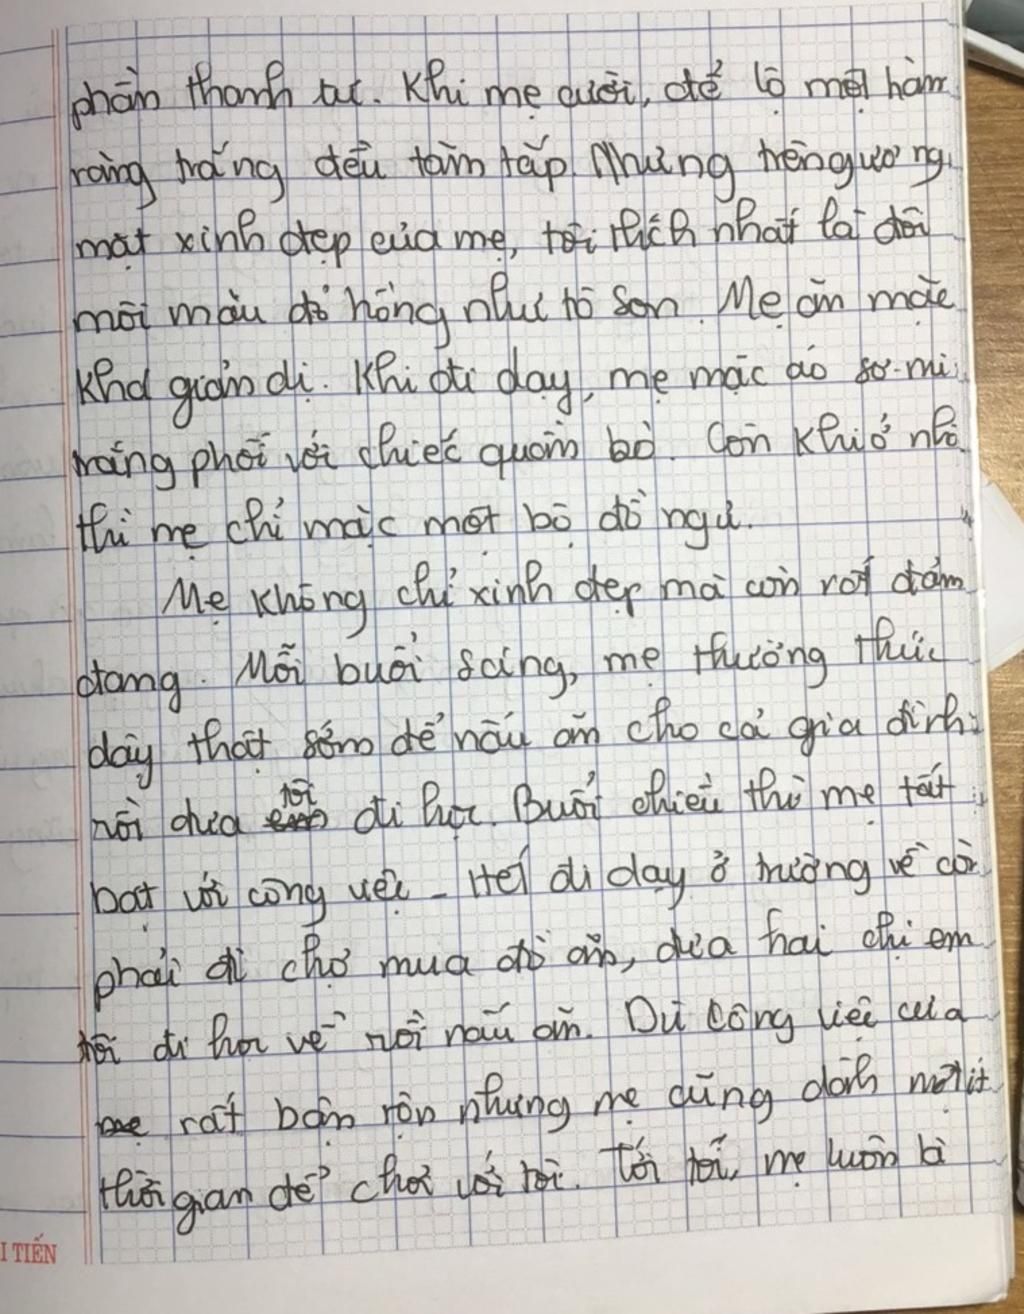 phần thanh tú. Khi mẹ cười, để lộ một hàm
răng trắng đều tăm tắp. Nhưng trên gương
mặt xinh đẹp của mẹ, tôi thích nhất là đôi
môi màu đỏ hồng như tô son. Mẹ ăn mặc
khá giản dị. Khi đi dạy, mẹ mặc áo sơ-mi
trắng phối với chiếc quần bò. Còn khi ở nhà
thì mẹ chỉ mặc một bộ đồ ngủ.
Mẹ không chỉ xinh đẹp mà còn rất đảm
đang. Mỗi buổi sáng, mẹ thường thức
dậy thật sớm để nấu ăn cho cả gia đình
rồi đưa tôi đi học. Buổi chiều thì mẹ tất
bật với công việc - Hết đi dạy ở trường về còn
phải đi chợ mua đồ ăn, đưa hai chị em
tôi đi học về rồi nấu ăn. Dù công việc của
mẹ rất bận rộn nhưng mẹ cũng dành một ít
thời gian để chơi với tôi. Tối tối, mẹ luôn bị
I TIẾN